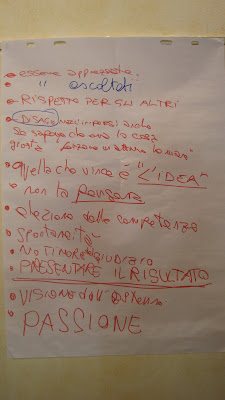 • essere apprezzata
• " ascoltati
• RISPETTO PER GLI ALTRI
• DISAGIO nell'imporsi anche
se sapevo che era la cosa
giusta "forzare un attimo la mano"
• quella che vince è "L'IDEA"
• non la persona
• elezione delle competenze
• spontaneità
• NO TIMORE GIUDIZIO
• PRESENTARE IL RISULTATO
• VISIONE dall'esterno
• PASSIONE